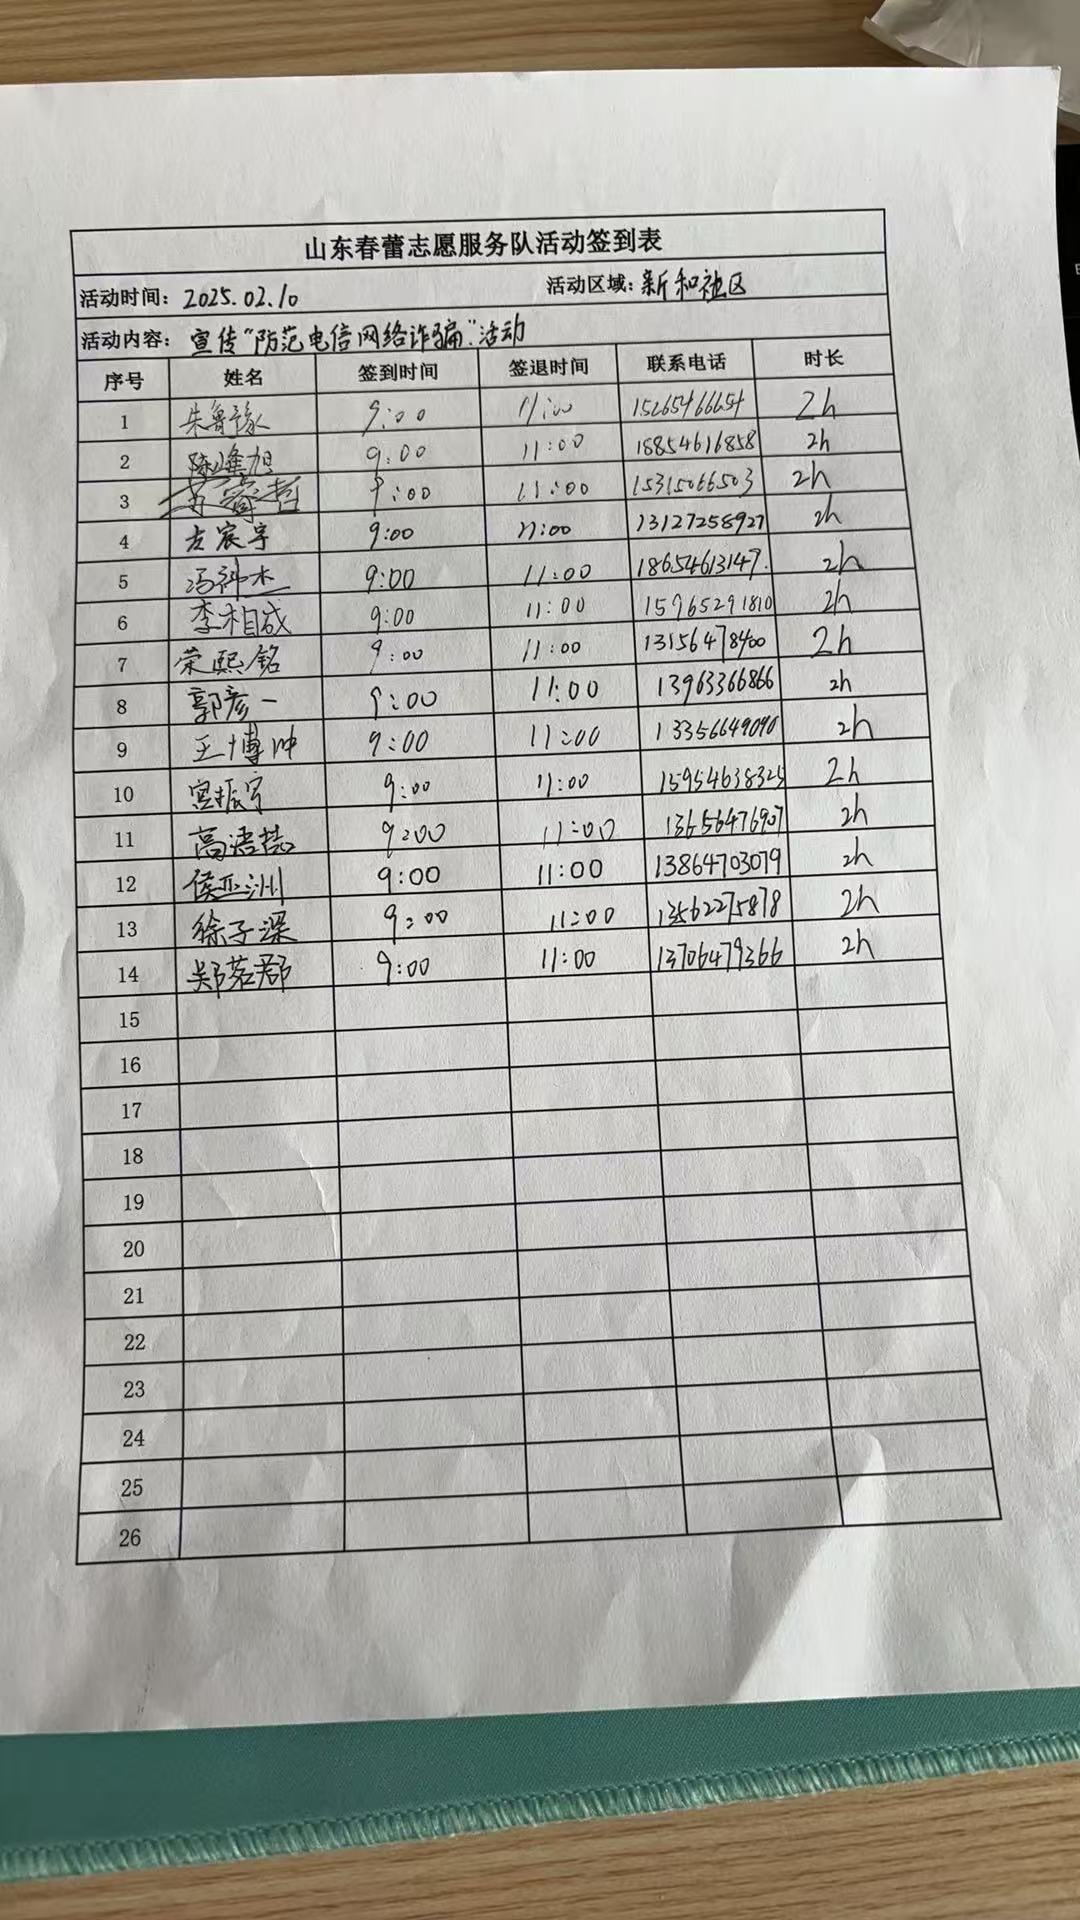 山东春蕾志愿服务队活动签到表
活动时间：2025.02.10 活动区域：新和社区
活动内容：宣传"防范电信网络诈骗"活动
序号 姓名 签到时间 签退时间 联系电话 时长
1 朱鲁豫 9:00 11:00 15265466654 2h
2 陈峰旭 9:00 11:00 18854616858 2h
3 苏睿哲 9:00 11:00 15315066503 2h
4 左宸宇 9:00 11:00 13127258927 2h
5 冯 杰 9:00 11:00 18654613147. 2h
6 李相成 9:00 11:00 15965291810 2h
7 荣熙铭 9:00 11:00 13156478400 2h
8 郭彦一 9:00 11:00 13963366866 2h
9 王博冲 9:00 11:00 13356649090 2h
10 宫振宇 9:00 11:00 15954638325 2h
11 高浩喆 9:00 11:00 13656476907 2h
12 侯亚洲 9:00 11:00 13864703079 2h
13 徐子深 9:00 11:00 13562275878 2h
14 郑茗郡 9:00 11:00 13706479366 2h
15
16
17
18
19
20
21
22
23
24
25
26